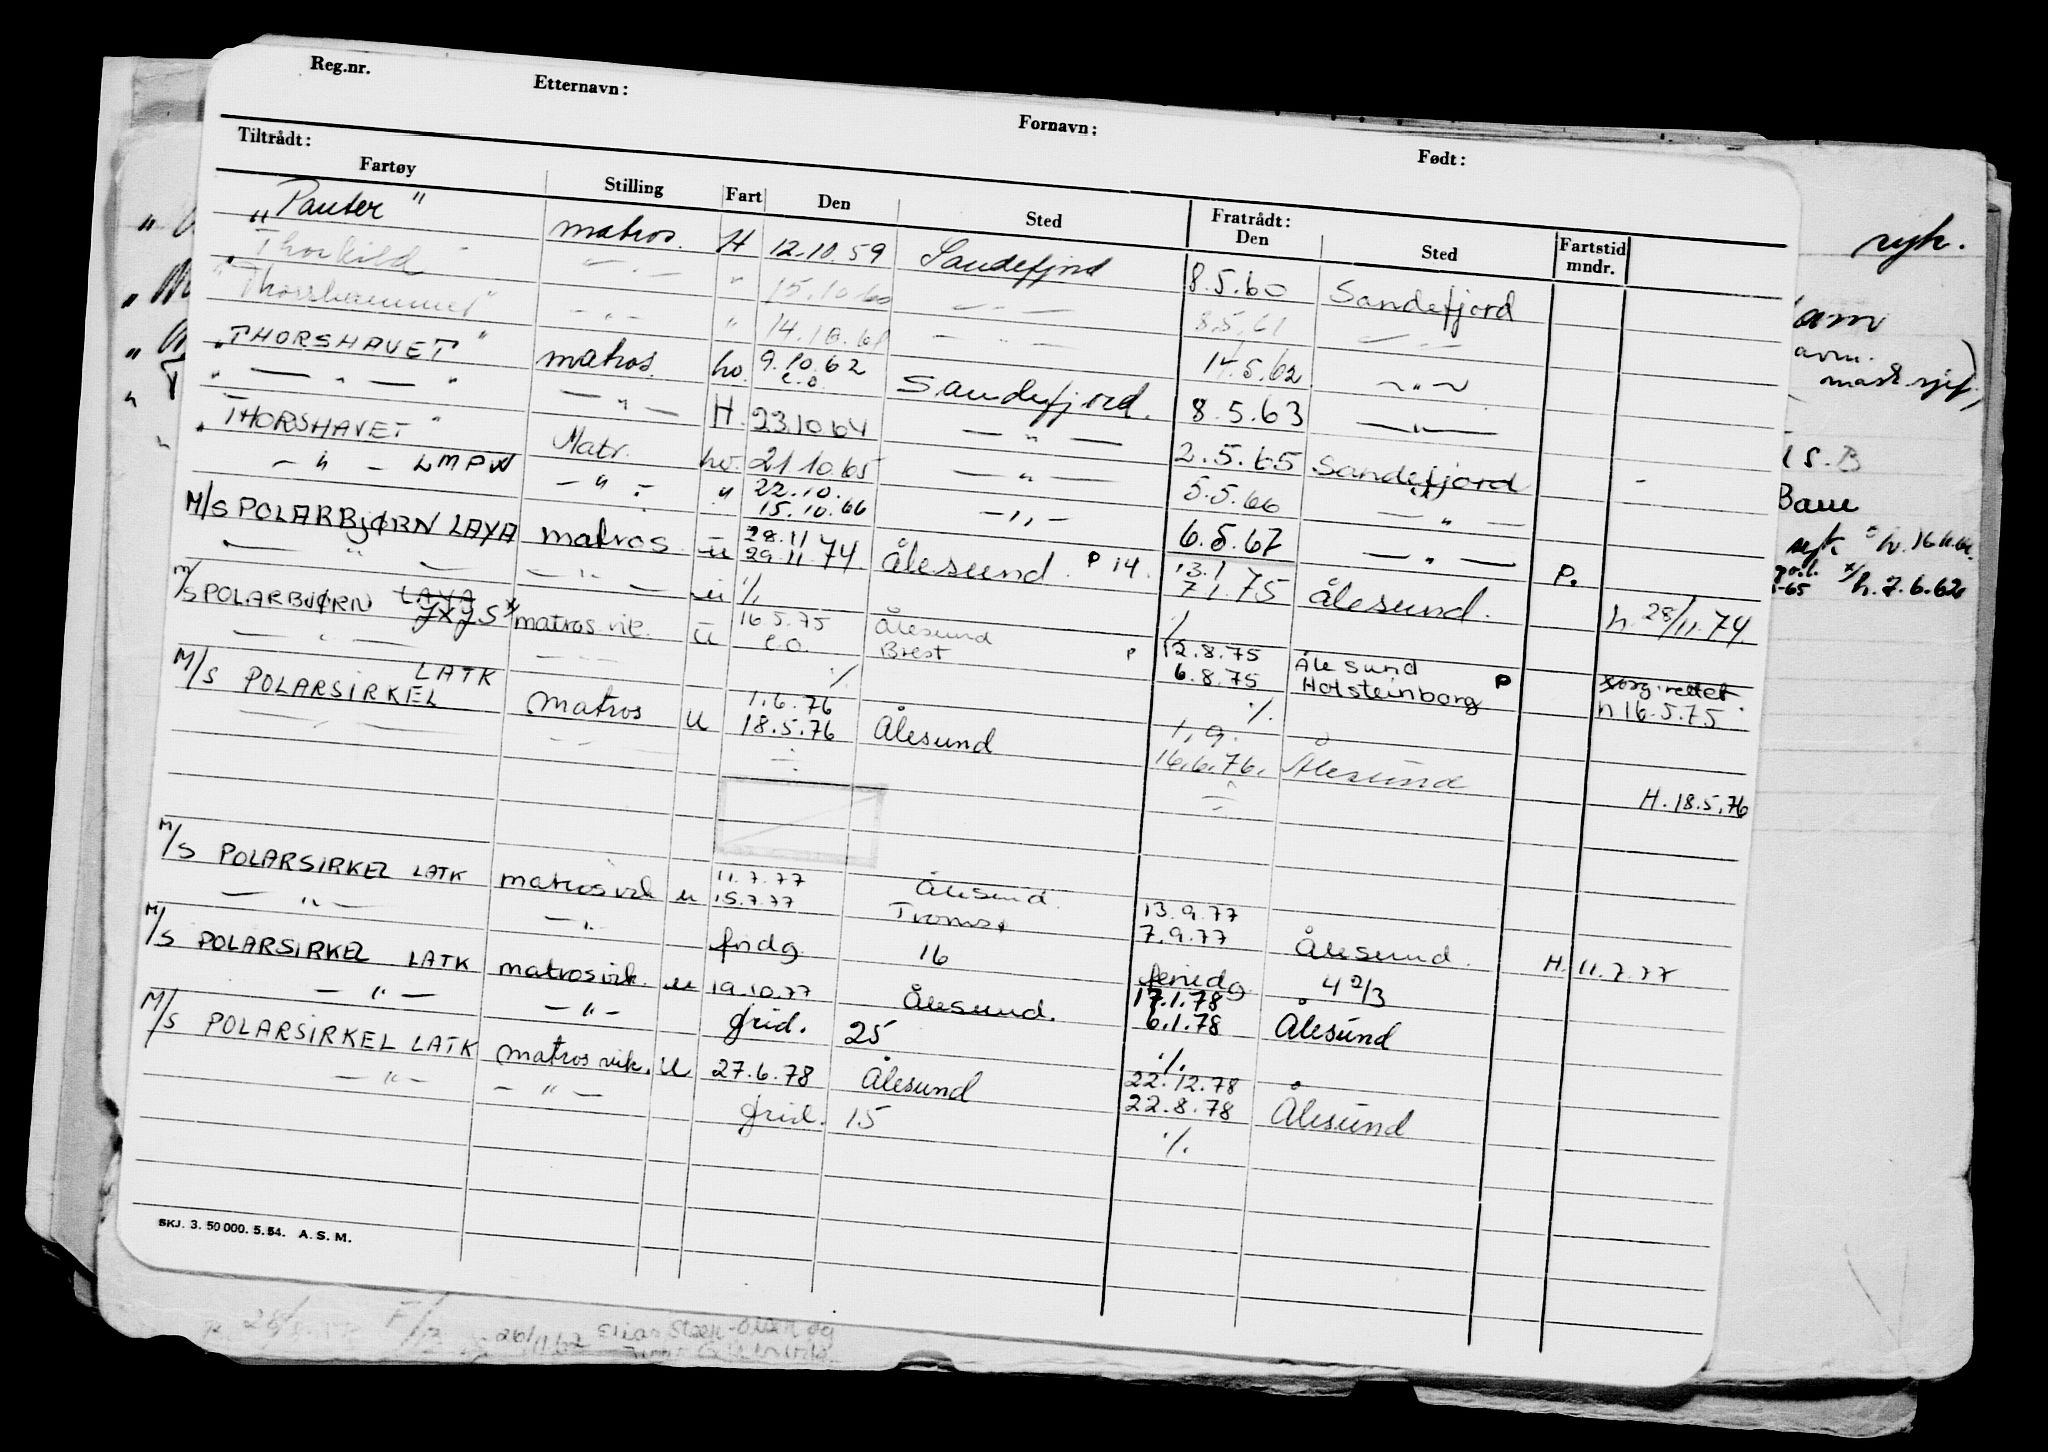 Reg.nr. Etternavn: Fornavn: Født:
Tiltrådt: Fratrådt:
Fartøy Stilling Fart Den Sted Den Sted Fartstid mndr.
„Panter" matros. H 12.10.59 Sandefjord 8.5.60 Sandefjord
„Thorkild" — " — " 15.10.60 — " — 8.5.61 — " —
"Thorshammer" — " — " 14.10.61 — " — 14.5.62 — " —
„THORSHAVET" matros. hv. 9.10.62 Sandefjord. 8.5.63 — " —
" — " — " — " — H. 23.10.64 — " — 2.5.65 Sandefjord
„THORSHAVET" Matr. hv. 21.10.65 — " — 5.5.66 — " —
— " — LMPW — " — " 22.10. 15.10.66 — " — 6.5.67 — " — P.
M/S POLARBJØRN LAYA matros u 28.11 29.11 74 Ålesund. P 14. 13.1 7.1 75 Ålesund. h. 28/11.74
— " — — " — u ./. ./.
M/S POLARBJØRN LAYA JXJS x/ matros vik. u 16.5.75 Ålesund P 12.8.75 Ålesund P
— " — — " — Brest 6.8.75 Holsteinborg h 16.5.75
M/S POLARSIRKEL LATK matros u 1.6.76 18.5.76 Ålesund 16.6.76. Ålesund H. 18.5.76
— " — — " —
M/S POLARSIRKEL LATK matros vik u 11.7.77 Ålesund. 13.9.77
— " — — " — 15.7.77 Tromsø 7.9.77 Ålesund. H. 11.7.77
fridg 16 feriedg 4 2/3
M/S POLARSIRKEL LATK matros vik. u 19.10.77 Ålesund. 17.1.78
— " — — " — 6.1.78 Ålesund
frid. 25 ./.
M/S POLARSIRKEL LATK matros vik. U 27.6.78 Ålesund 22.12.78
— " — — " — 22.8.78 Ålesund
frid. 15 ./.
SKJ. 3. 50 000. 5.54. A. S. M.
26/11.62 Elias Steen-Olsen og
h. 16
h. 7.6.62